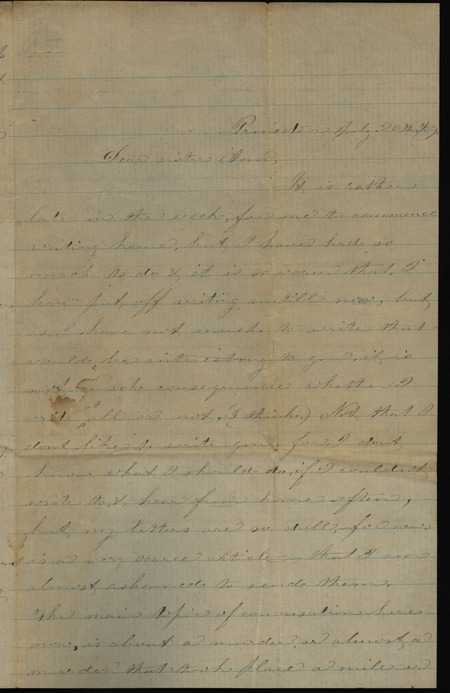 Princeton July 20th
Dear sister Ann,
It is rather
late in the week, for me to commence
writing home, but, I have had so
much to do & it is so warm that, I
have put, off writing untill now, but,
as I have not, much to write that
would, be interesting to you, it, is
not much consequence whether I
write at all or not, I think,) Not, that I
dont, like to write you, for, I dont,
know what I should do, if I could not,
write to, & hear from home often,
but, my letters are so dull, for news
is a very scarce article that I am
almost, ashamed to send them,
The main topic of conversation here
now, is about a murder, or almost, a
murder that took place a mile or